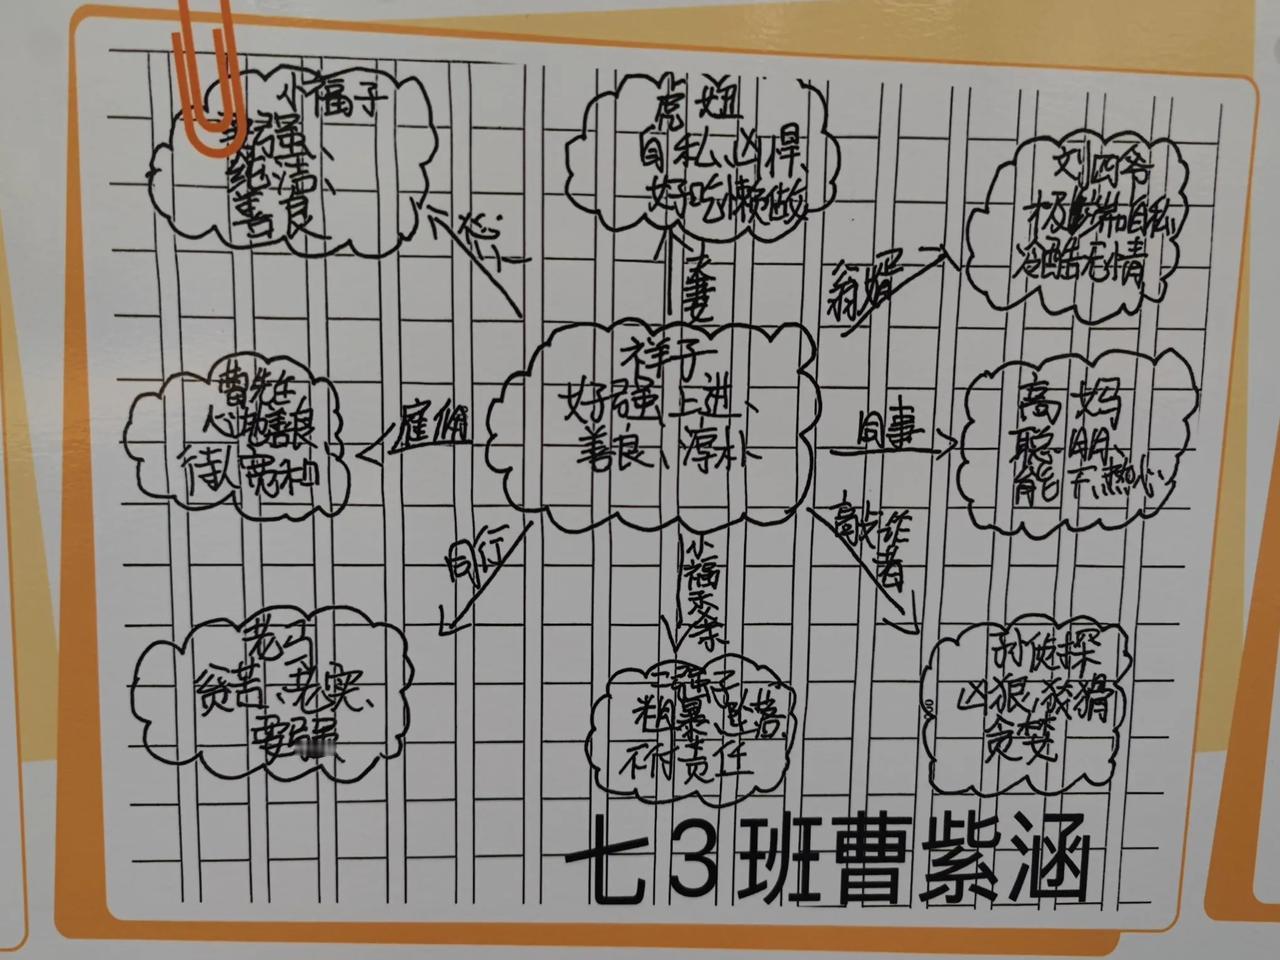 小福子
要强、
绝情、
善良
虎妞
自私、凶悍、
好吃懒做
刘四爷
极端自私
冷酷无情
夫妻
翁婿
祥子
好强、上进、
善良、淳朴
曹先生
心地善良
待人宽和
雇佣
同事
高妈
聪明、
能干、热心
同行
小福子父亲
敲诈者
老马
贫苦、老实、
要强
二强子
粗暴、堕落
不付责任
孙侦探
凶狠、狡猾
贪婪
七3班曹紫涵